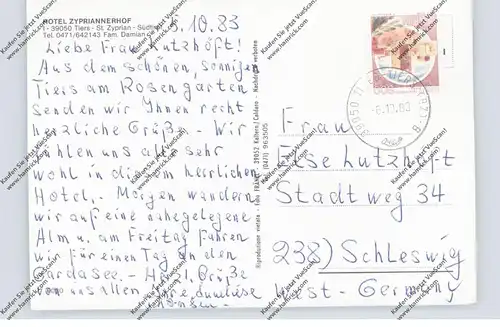 HOTEL ZYPRIANNERHOF
I - 39050 Tiers - St. Zyprian - Südtirol
Tel. 0471/642143 Fam. Damian
5.10.83
Liebe Frau Lutzhöft!
Aus dem schönen, sonnigen
Tiers am Rosengarten
senden wir Ihnen recht
herzliche Grüße. - Wir
fühlen uns alle sehr
wohl in diesem herrlichen
Hotel. - Morgen wandern
wir auf eine nahegelegene
Alm u. am Freitag fahren
wir für einen Tag an den
Gardasee. - Herzl. Grüße
von uns allen Ihre
Frau
Else Lutzhöft
Stadtweg 34
238) Schleswig
West-Germany
Riproduzione vietata - Foto
39052 Kaltern / Caldaro
Nachdruck verboten
39050